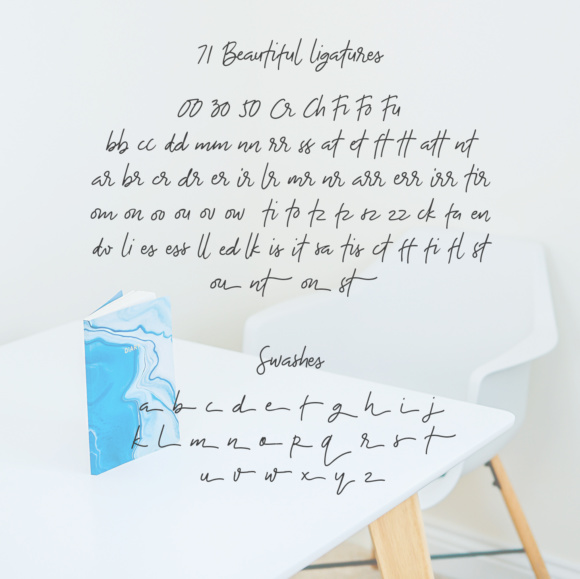 71 Beautiful ligatures
00 30 50 Cr Ch Fi Fo Fu
bb cc dd mm nn rr ss at et ft tt att nt
ar br cr dr er ir lr mr nr arr err irr tir
om on oo ou ov ow ti to tz fz sz zz ck fa en
do li es ess ll ed lk is it sa tis ct ff fi fl st
ou nt on st
Swashes
a b c d e f g h i j
k l m n o p q r s t
u v w x y z